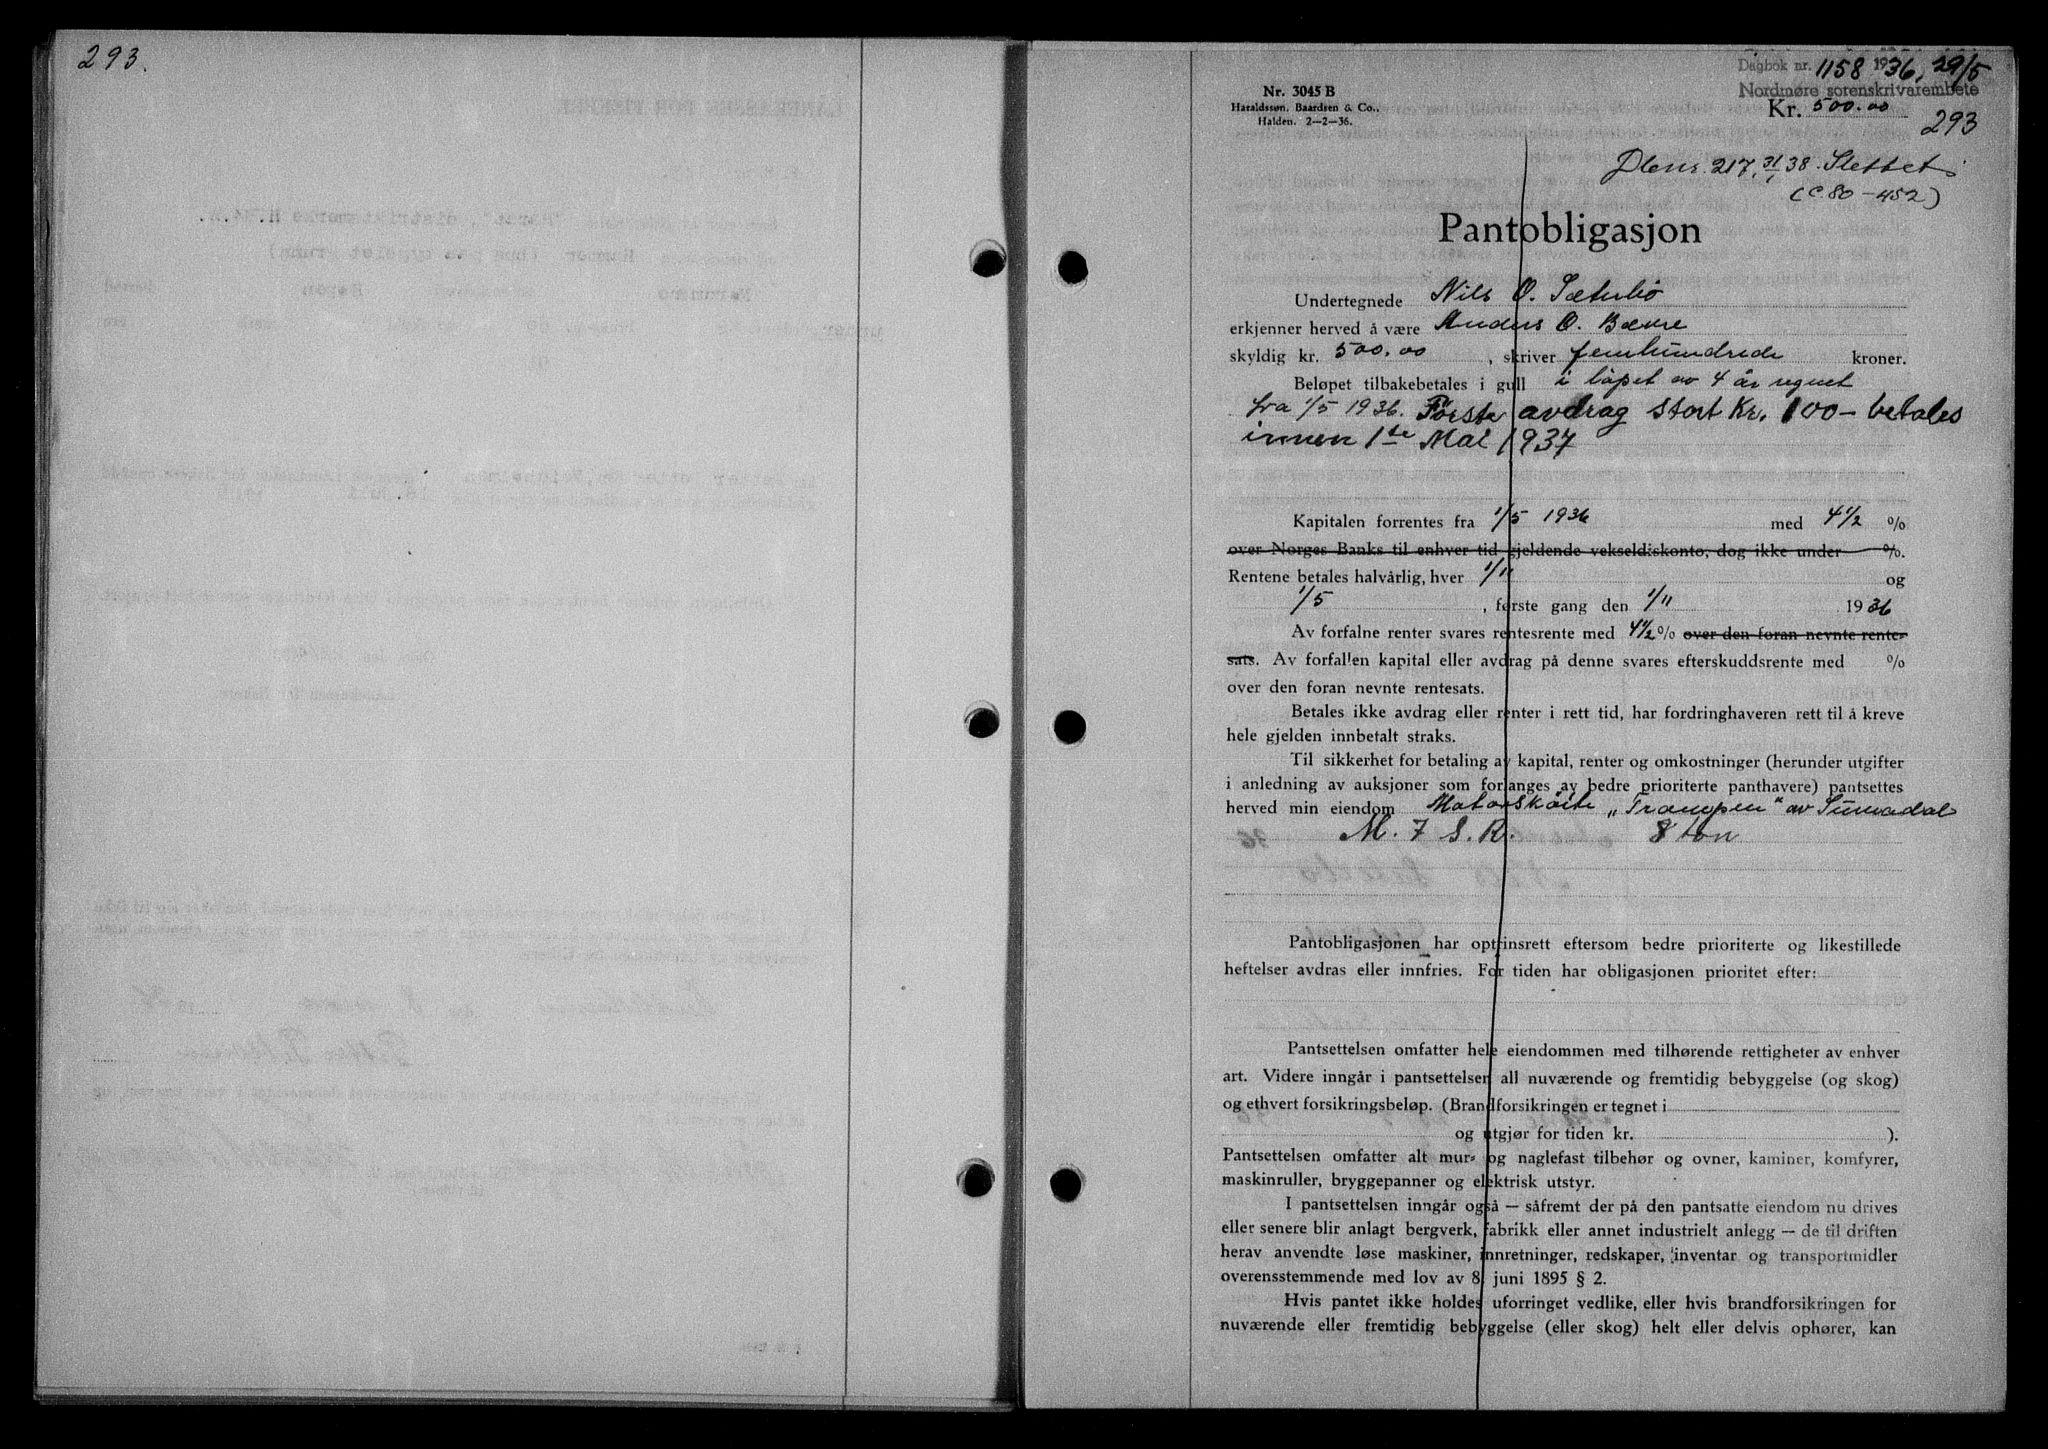 293.
Nr. 3045 B
Haraldssøn, Baardsen & Co.,
Halden. 2—2—36.
Dagbok nr. 1158 1936, 29/5
Nordmøre sorenskrivarembete
Kr. 500.00
293
217, 31/1 38. Slettet
(C. 80 - 452)
Pantobligasjon
Undertegnede Nils O. Sæterbø
erkjenner herved å være Anders O. Bævre
skyldig kr. 500.00, skriver femhundrede kroner.
Beløpet tilbakebetales i gull i løpet av 4 år regnet
fra 1/5 1936. Første avdrag stort Kr. 100- betales
innen 1ste Mai 1937
Kapitalen forrentes fra 1/5 1936 med 4 1/2 %
over Norges Banks til enhver tid gjeldende vekseldiskonto, dog ikke under %.
Rentene betales halvårlig, hver 1/11 og
1/5, første gang den 1/11 1936
Av forfalne renter svares rentesrente med 4 1/2 % over den foran nevnte rente-
sats. Av forfallen kapital eller avdrag på denne svares efterskuddsrente med %
over den foran nevnte rentesats.
Betales ikke avdrag eller renter i rett tid, har fordringhaveren rett til å kreve
hele gjelden innbetalt straks.
Til sikkerhet for betaling av kapital, renter og omkostninger (herunder utgifter
i anledning av auksjoner som forlanges av bedre prioriterte panthavere) pantsettes
herved min eiendom Motorskøite „Trampen" av Surnadal
M. 7 S. R. 8 ton
Pantobligasjonen har opptrinsrett eftersom bedre prioriterte og likestillede
heftelser avdras eller innfries. For tiden har obligasjonen prioritet efter:
Pantsettelsen omfatter hele eiendommen med tilhørende rettigheter av enhver
art. Videre inngår i pantsettelsen all nuværende og fremtidig bebyggelse (og skog)
og ethvert forsikringsbeløp. (Brandforsikringen er tegnet i
og utgjør for tiden kr. ).
Pantsettelsen omfatter alt mur- og naglefast tilbehør og ovner, kaminer, komfyrer,
maskinruller, bryggepanner og elektrisk utstyr.
I pantsettelsen inngår også — såfremt der på den pantsatte eiendom nu drives
eller senere blir anlagt bergverk, fabrikk eller annet industrielt anlegg — de til driften
herav anvendte løse maskiner, innretninger, redskaper, inventar og transportmidler
overensstemmende med lov av 8. juni 1895 § 2.
Hvis pantet ikke holdes uforringet vedlike, eller hvis brandforsikringen for
nuværende eller fremtidig bebyggelse (eller skog) helt eller delvis ophører, kan